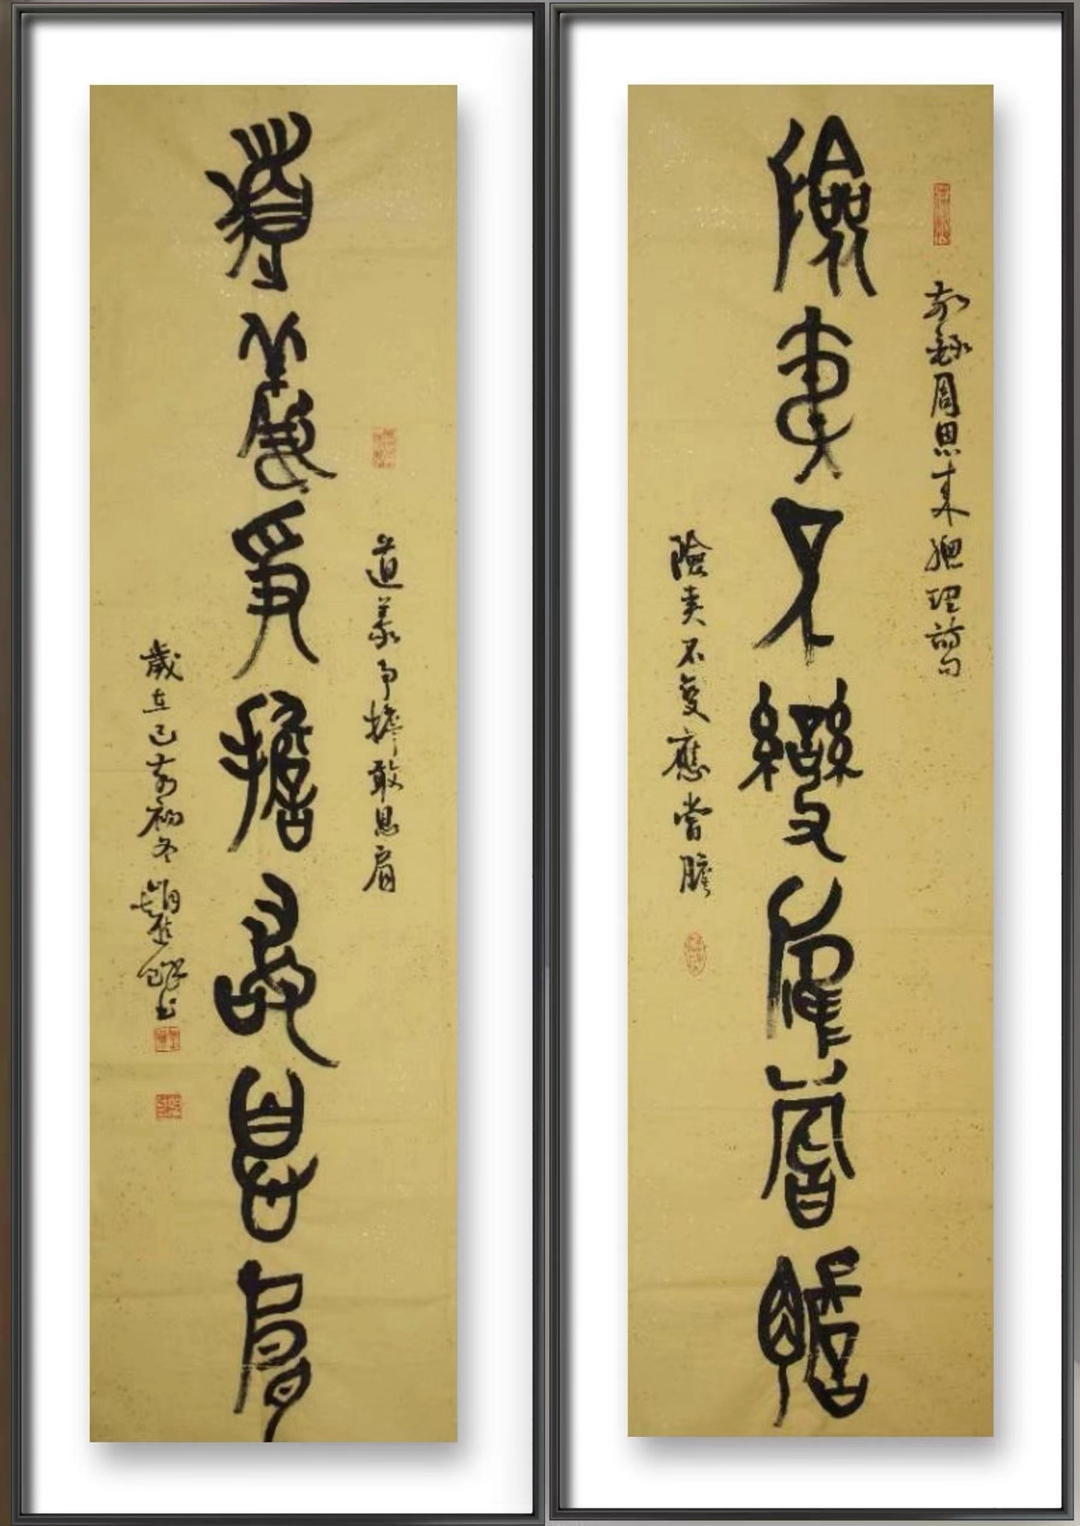 錄周恩来總理詩句
險夷不變應嘗膽
險夷不變應嘗膽
道義爭擔敢息肩
道義爭擔敢息肩
歲在己亥初冬书